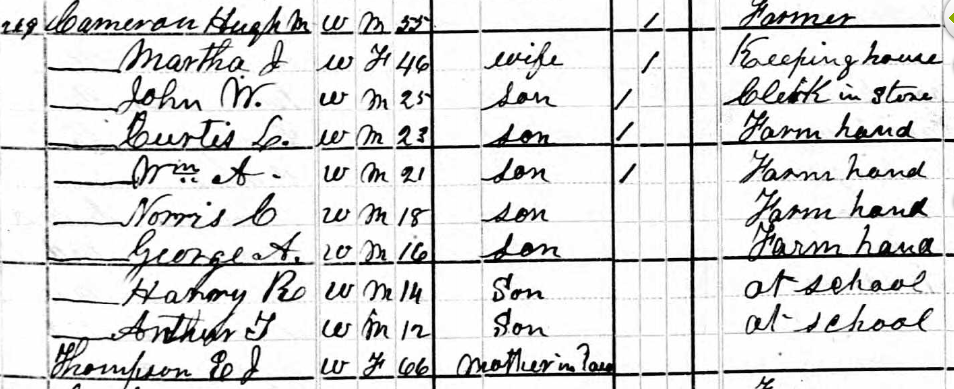 269 Cameron Hugh M W M 55 / Farmer
— Martha J W F 46 wife / Keeping house
— John W. W M 25 son / Clerk in Store
— Curtis L. W M 23 son / Farm hand
— Wm A - W M 21 son / Farm hand
— Norris C W M 18 son Farm hand
— George A. W M 16 son Farm hand
— Harry R W M 14 Son at school
— Arthur T W M 12 Son at school
Thompson E J W F 66 Mother in Law